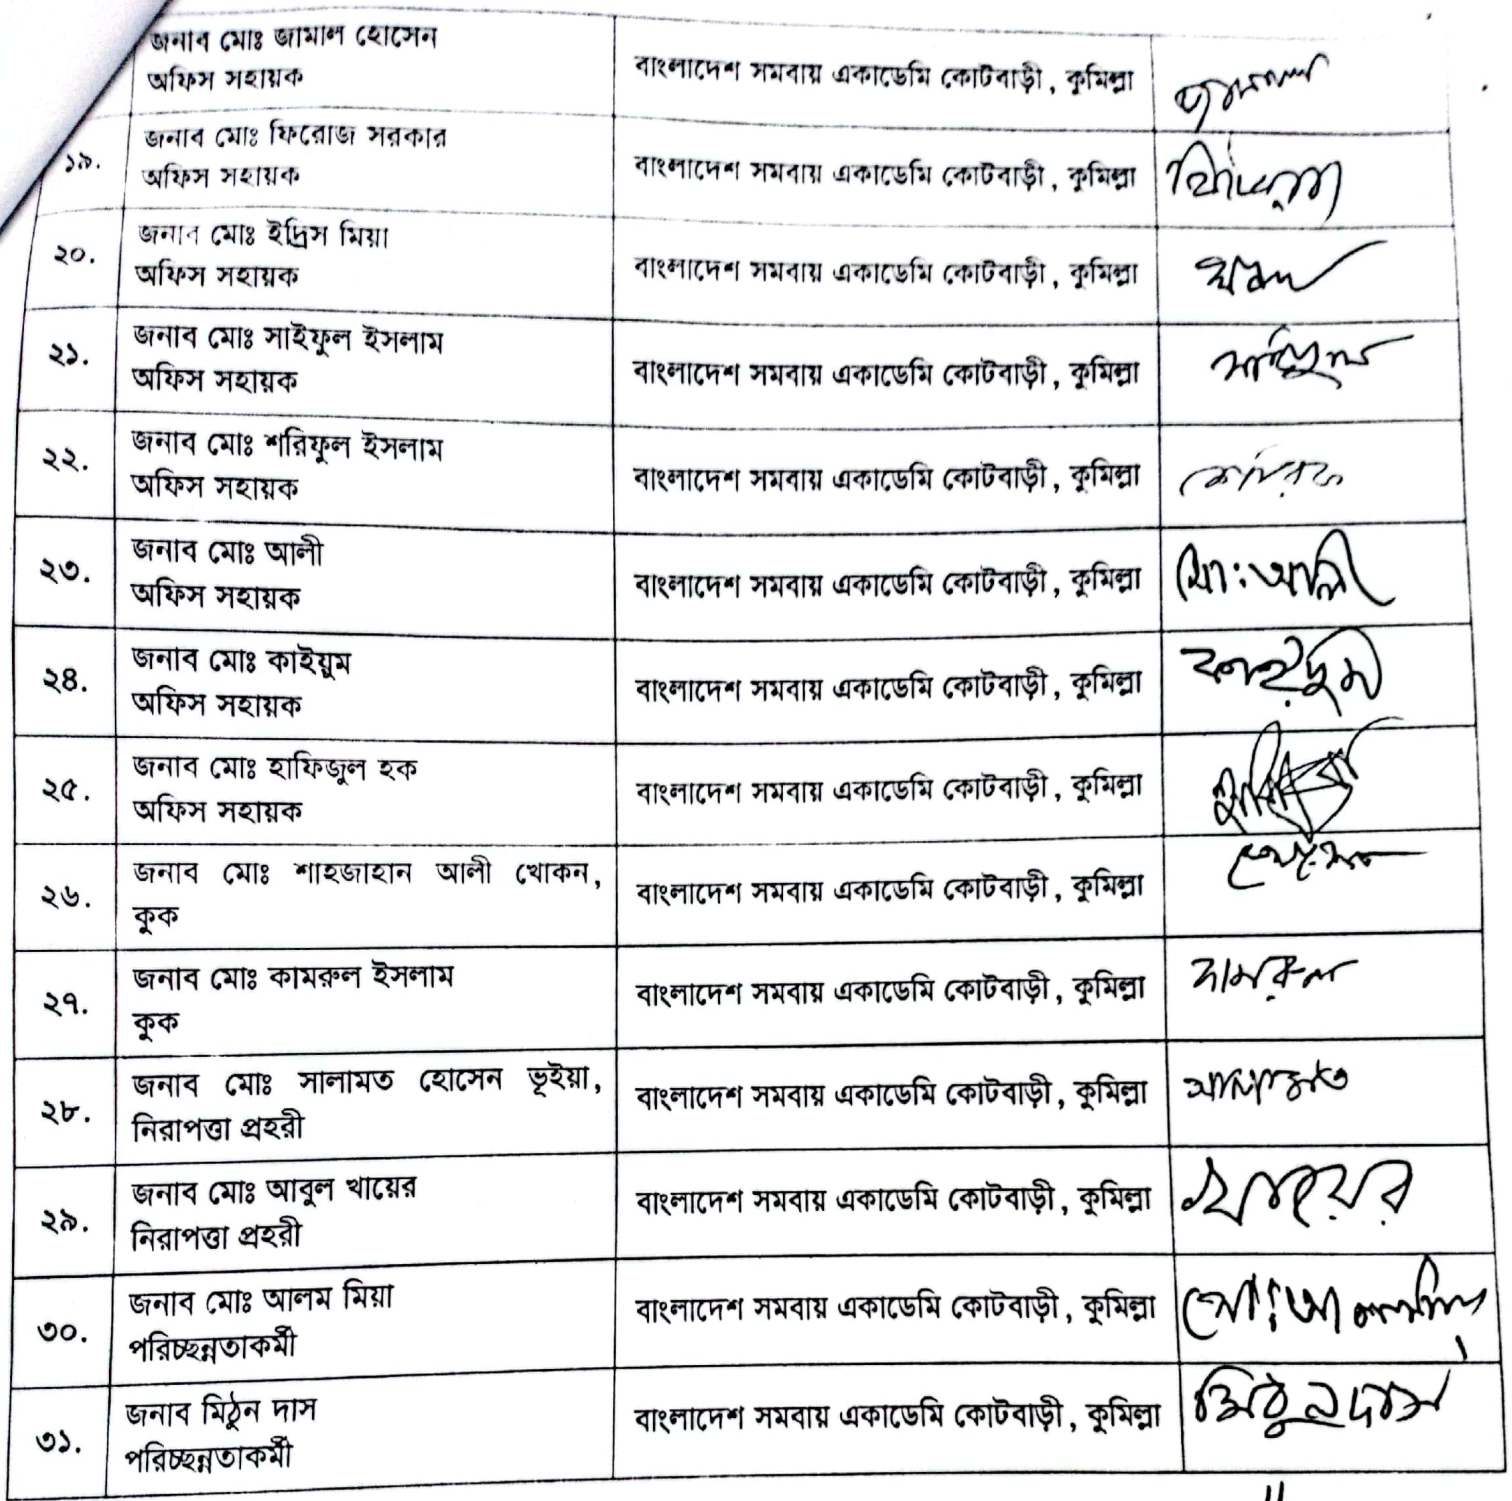 জনাব মোঃ জামাল হোসেন
অফিস সহায়ক
বাংলাদেশ সমবায় একাডেমি কোটবাড়ী, কুমিল্লা
১৯.
জনাব মোঃ ফিরোজ সরকার
অফিস সহায়ক
বাংলাদেশ সমবায় একাডেমি কোটবাড়ী, কুমিল্লা
২০.
জনাব মোঃ ইদ্রিস মিয়া
অফিস সহায়ক
বাংলাদেশ সমবায় একাডেমি কোটবাড়ী, কুমিল্লা
২১.
জনাব মোঃ সাইফুল ইসলাম
অফিস সহায়ক
বাংলাদেশ সমবায় একাডেমি কোটবাড়ী, কুমিল্লা
২২.
জনাব মোঃ শরিফুল ইসলাম
অফিস সহায়ক
বাংলাদেশ সমবায় একাডেমি কোটবাড়ী, কুমিল্লা
২৩.
জনাব মোঃ আলী
অফিস সহায়ক
বাংলাদেশ সমবায় একাডেমি কোটবাড়ী, কুমিল্লা
মো: আলী
২৪.
জনাব মোঃ কাইয়ুম
অফিস সহায়ক
বাংলাদেশ সমবায় একাডেমি কোটবাড়ী, কুমিল্লা
কাইয়ুম
২৫.
জনাব মোঃ হাফিজুল হক
অফিস সহায়ক
বাংলাদেশ সমবায় একাডেমি কোটবাড়ী, কুমিল্লা
২৬.
জনাব মোঃ শাহজাহান আলী খোকন,
কুক
বাংলাদেশ সমবায় একাডেমি কোটবাড়ী, কুমিল্লা
২৭.
জনাব মোঃ কামরুল ইসলাম
কুক
বাংলাদেশ সমবায় একাডেমি কোটবাড়ী, কুমিল্লা
কামরুল
২৮.
জনাব মোঃ সালামত হোসেন ভূইয়া,
নিরাপত্তা প্রহরী
বাংলাদেশ সমবায় একাডেমি কোটবাড়ী, কুমিল্লা
সালামত
২৯.
জনাব মোঃ আবুল খায়ের
নিরাপত্তা প্রহরী
বাংলাদেশ সমবায় একাডেমি কোটবাড়ী, কুমিল্লা
খায়ের
৩০.
জনাব মোঃ আলম মিয়া
পরিচ্ছন্নতাকর্মী
বাংলাদেশ সমবায় একাডেমি কোটবাড়ী, কুমিল্লা
৩১.
জনাব মিঠুন দাস
পরিচ্ছন্নতাকর্মী
বাংলাদেশ সমবায় একাডেমি কোটবাড়ী, কুমিল্লা
মিঠুন দাস